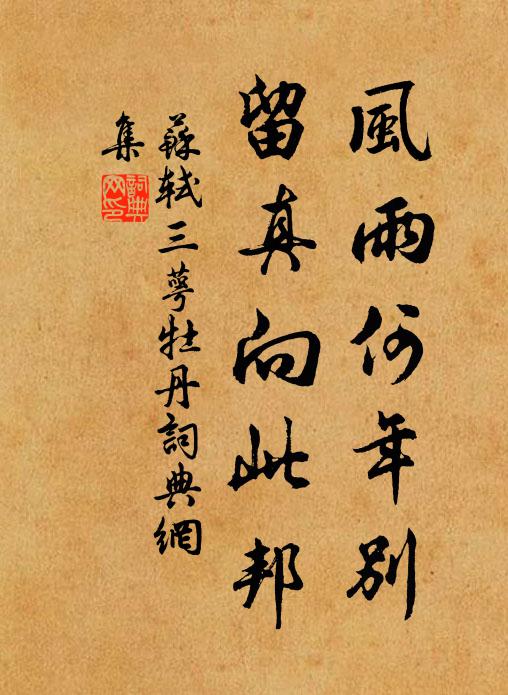 風雨何年別
留真向此邦
蘇軾三萼牡丹詞典網
集
詞典
网印